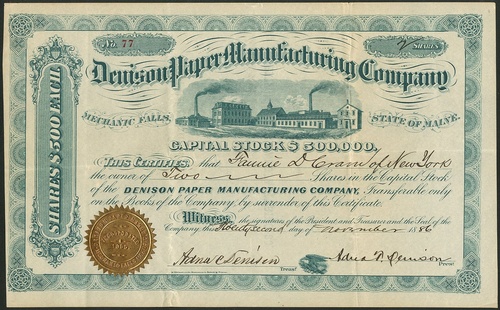 No. 77
2 SHARES
Denison Paper Manufacturing Company
MECHANIC FALLS,
STATE OF MAINE.
CAPITAL STOCK $500,000,
SHARES $500 EACH
THIS CERTIFIES, that Fannie D Cram of New York
the owner of Two Shares in the Capital Stock
of the DENISON PAPER MANUFACTURING COMPANY, Transferable only
on the Books of the Company by surrender of this Certificate.
Witness, the signatures of the President and Treasurer and the Seal of the
Company, this Twenty second day of November 1886
Adna C Denison Treasr.
Adna T. Denison Prest.